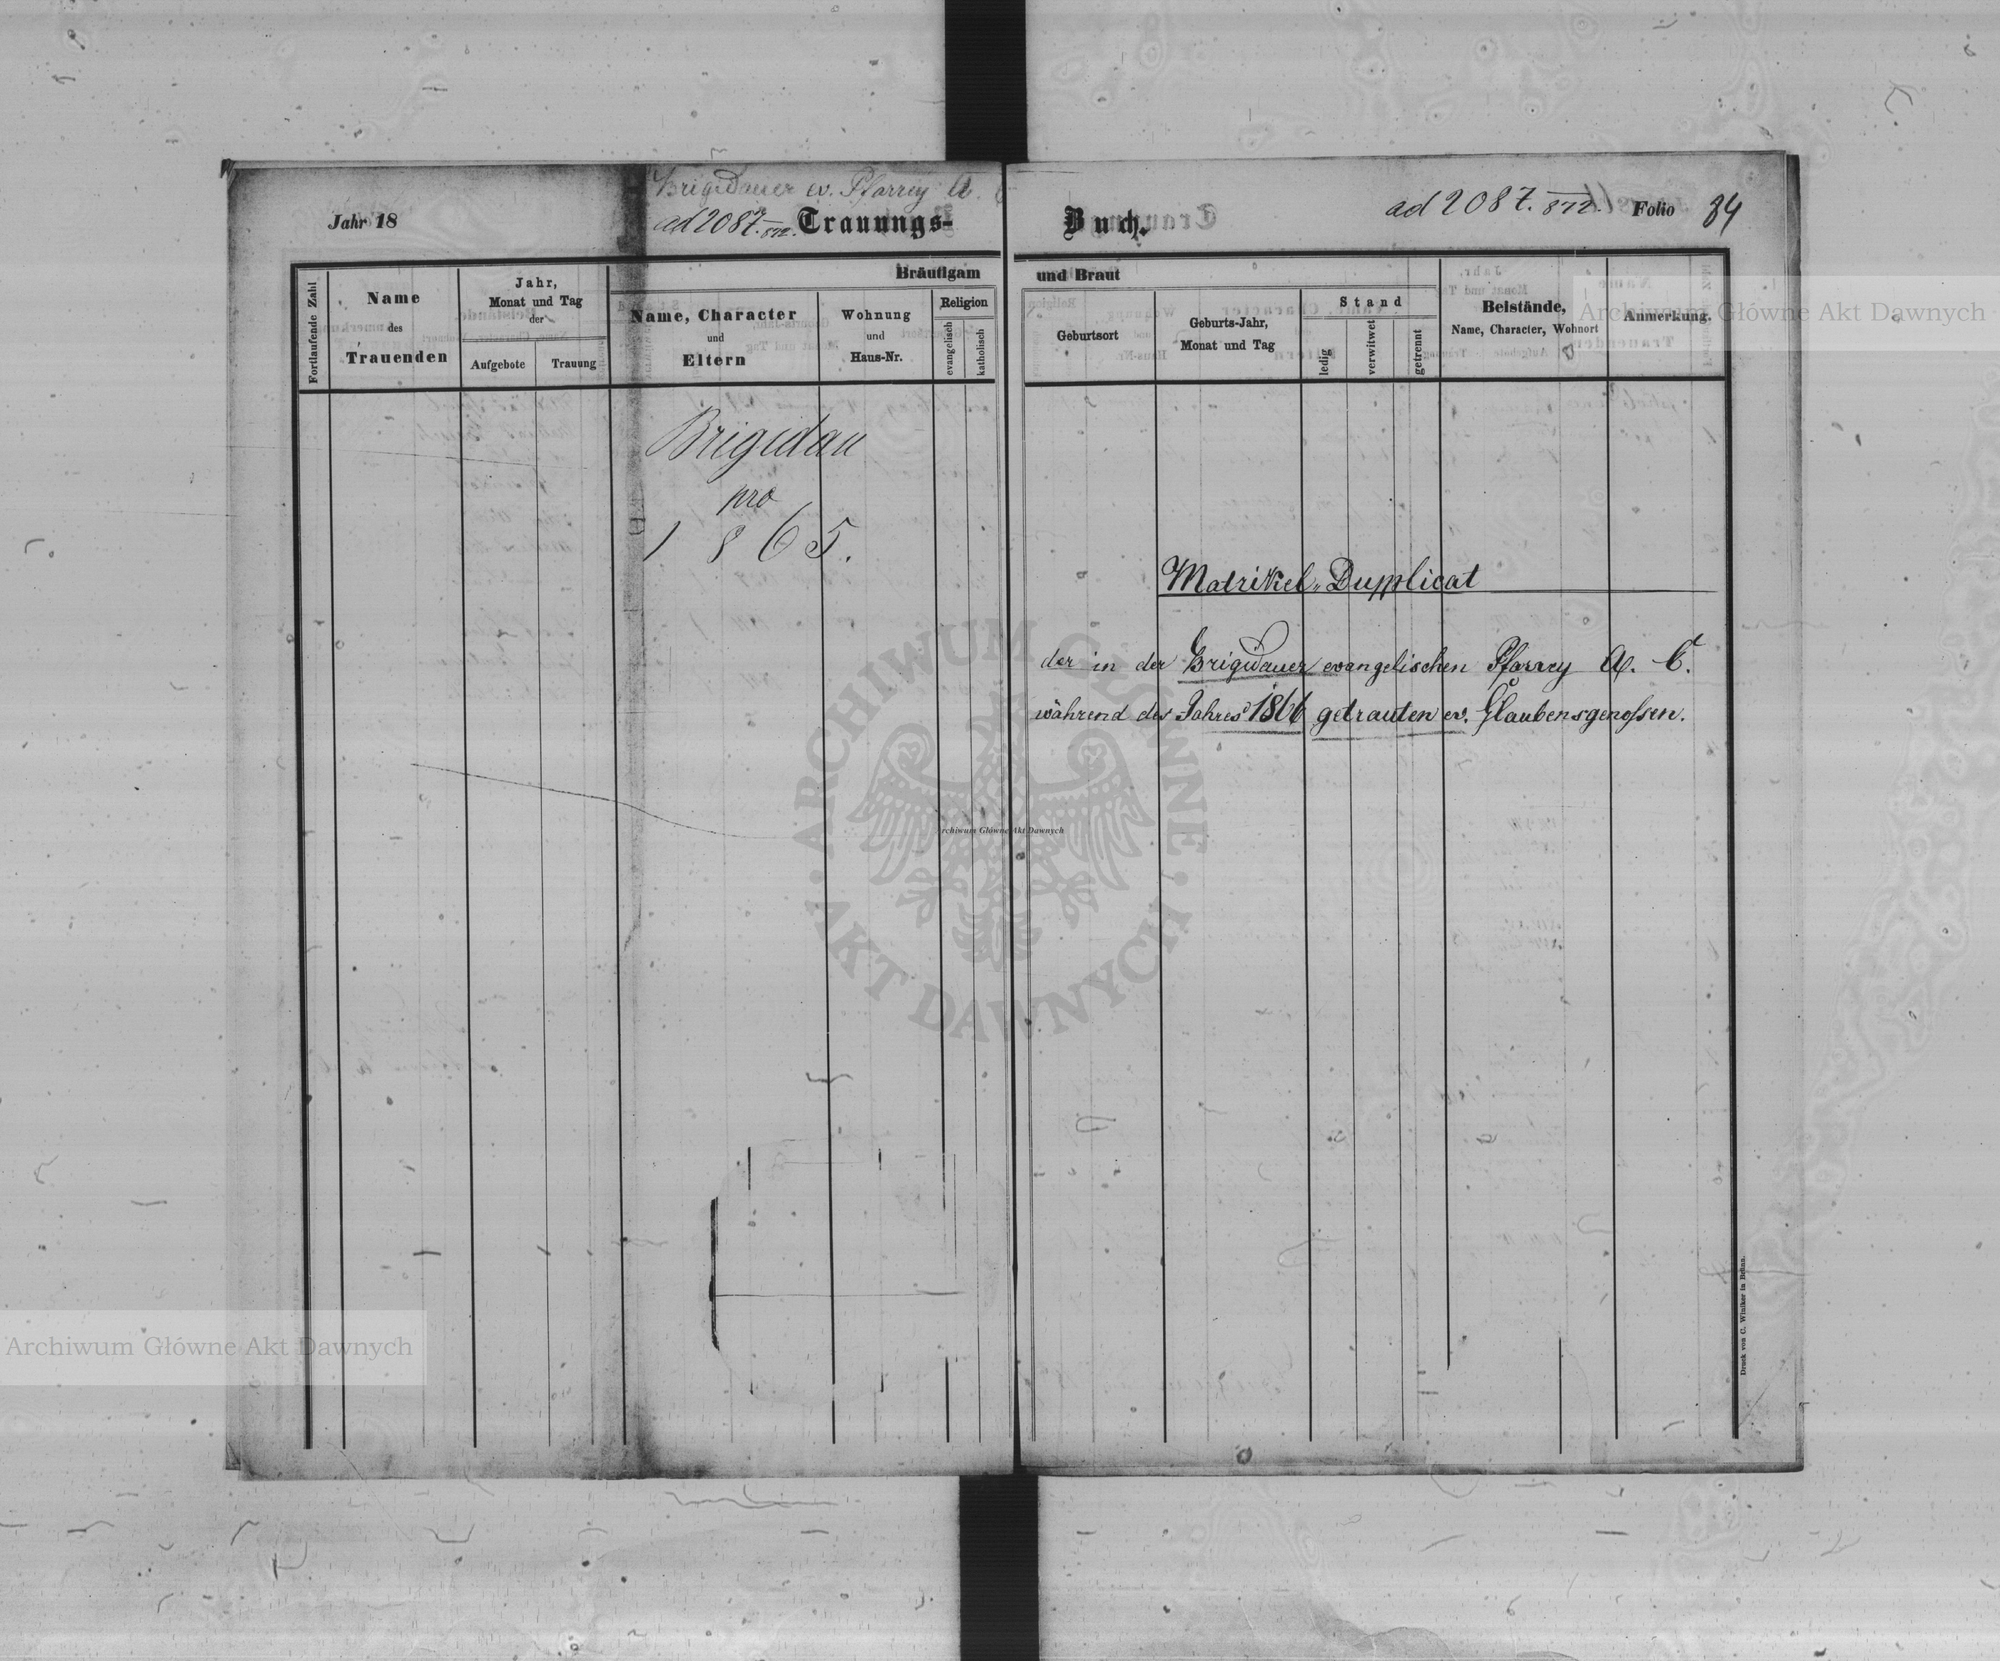 Brigidauer ev. Pfarrey A.
Jahr 18
ad 2087. 872. Trauungs-
Fortlaufende Zahl
Name
des
Trauenden
Jahr,
Monat und Tag
der
Aufgebote
Trauung
Bräutigam
Name, Character
und
Eltern
Wohnung
und
Haus-Nr.
Religion
evangelisch
katholisch
Brigidau
pro
1865.
ad 2087. 872. Folio 84
Buch.
und Braut
Geburtsort
Geburts-Jahr,
Monat und Tag
Stand
ledig
verwitwet
getrennt
Beistände,
Name, Character, Wohnort
Anmerkung.
Matrikel-Dupplicat
der in der Brigidauer evangelischen Pfarrey A. C.
während des Jahres 1866 getrauten ev. Glaubensgenossen.
Druck von C. Winiker in Brünn.
Archiwum Główne Akt Dawnych
ARCHIWUM GŁÓWNE
AKT DAWNYCH
Archiwum Główne Akt Dawnych
Archiwum Główne Akt Dawnych